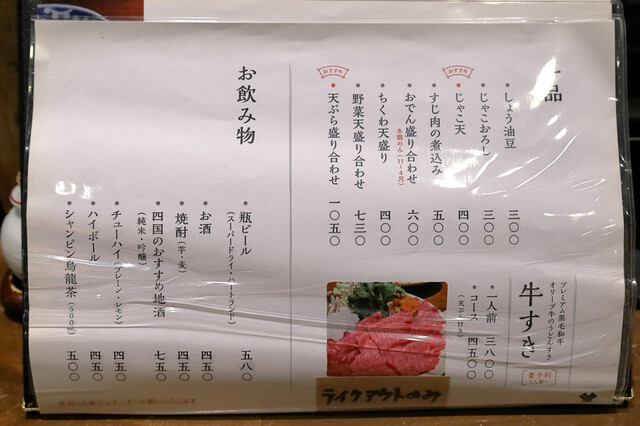 一品
しょう油豆 三〇〇
じゃこおろし 三〇〇
おすすめ
じゃこ天 四〇〇
すじ肉の煮込み 五〇〇
おでん盛り合わせ 六〇〇
冬期のみ(11~4月)
ちくわ天盛り 四〇〇
野菜天盛り合わせ 七三〇
おすすめ
天ぷら盛り合わせ 一〇五〇
プレミアム黒毛和牛
オリーブ牛のうどんすき
牛すき
要予約
2人前〜
一人前 三八〇〇
コース 四五〇〇
(天ぷら付き)
テイクアウトのみ
お飲み物
瓶ビール 五八〇
(スーパードライ・ハートランド)
お酒 四五〇
焼酎(芋・麦) 四五〇
四国のおすすめ地酒 七五〇
(純米・吟醸)
チューハイ(プレーン・レモン) 四五〇
ハイボール 四五〇
ジャンピン烏龍茶(500ml) 五〇〇